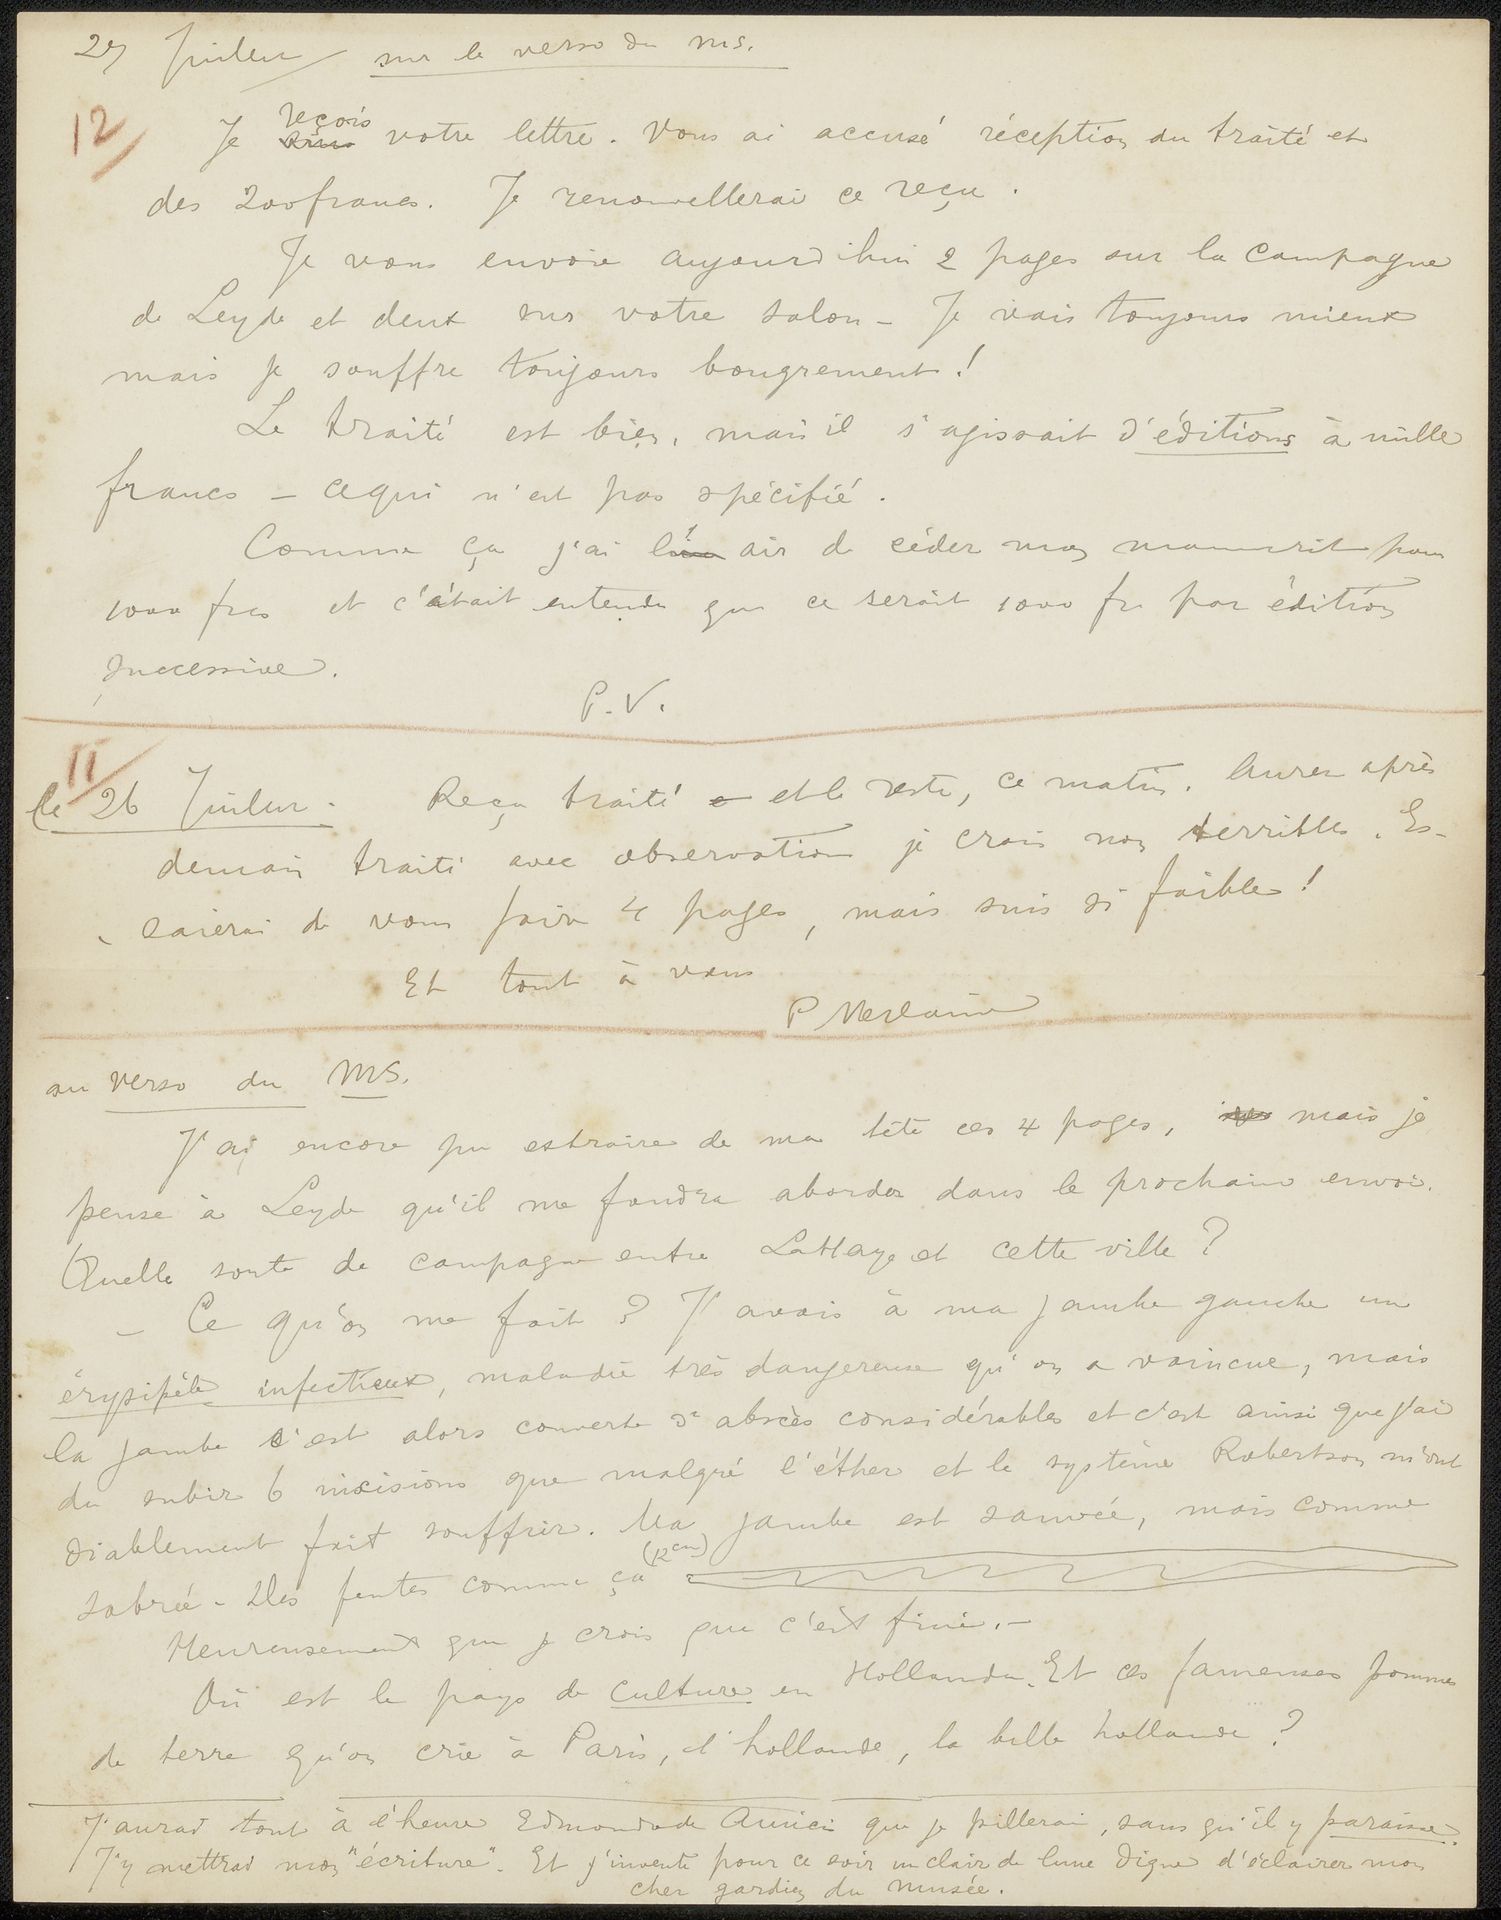 27 Juillet / sur le verso du ms.
12/
Je reçois votre lettre. Vous ai accusé réception du traité et
des 200 francs. Je renouvellerai ce reçu.
Je vous envoie aujourd'hui 2 pages sur la campagne
de Leyde et deux sur votre salon — Je vais toujours mieux
mais je souffre toujours bougrement !
Le traité est bien, mais il s'agissait d'éditions à mille
francs — ce qui n'est pas spécifié.
Comme ça j'ai l'air de céder mon manuscrit pour
1000 frcs et c'était entendu que ce serait 1000 fr par édition
successive.
P. V.
11/
Ce 26 Juillet. Reçu traité et le reste, ce matin. Aurez après
demain traité avec observation je crois non terribles. Es-
saierai de vous faire 4 pages, mais suis si faible !
Et tout à vous
P Verlaine
au verso du MS.
J'ai encore pu extraire de ma tête ces 4 pages, mais je
pense à Leyde qu'il me faudra aborder dans le prochain envoi.
Quelle sorte de campagne entre La Haye et cette ville ?
— Ce qu'on me fait ? J'avais à ma jambe gauche un
érysipèle infectieux, maladie très dangereuse qu'on a vaincue, mais
la jambe s'est alors couverte d'abscès considérables et c'est ainsi que j'ai
du subir 6 incisions que malgré l'éther et le système Robertson m'ont
diablement fait souffrir. Ma jambe est sauvée, mais comme
sabrée — Des fentes comme ça (12 cm)
Heureusement que je crois que c'est fini. —
Où est le pays de culture en Hollande. Et ces fameuses pommes
de terre qu'on crie à Paris, d'hollande, la belle hollande ?
J'aurai tout à l'heure Edmondo de Amicis que je pillerai, sans qu'il y paraisse.
J'y mettrai mon "écriture". Et j'invente pour ce soir un clair de lune digne d'éclairer mon
cher gardien du musée.